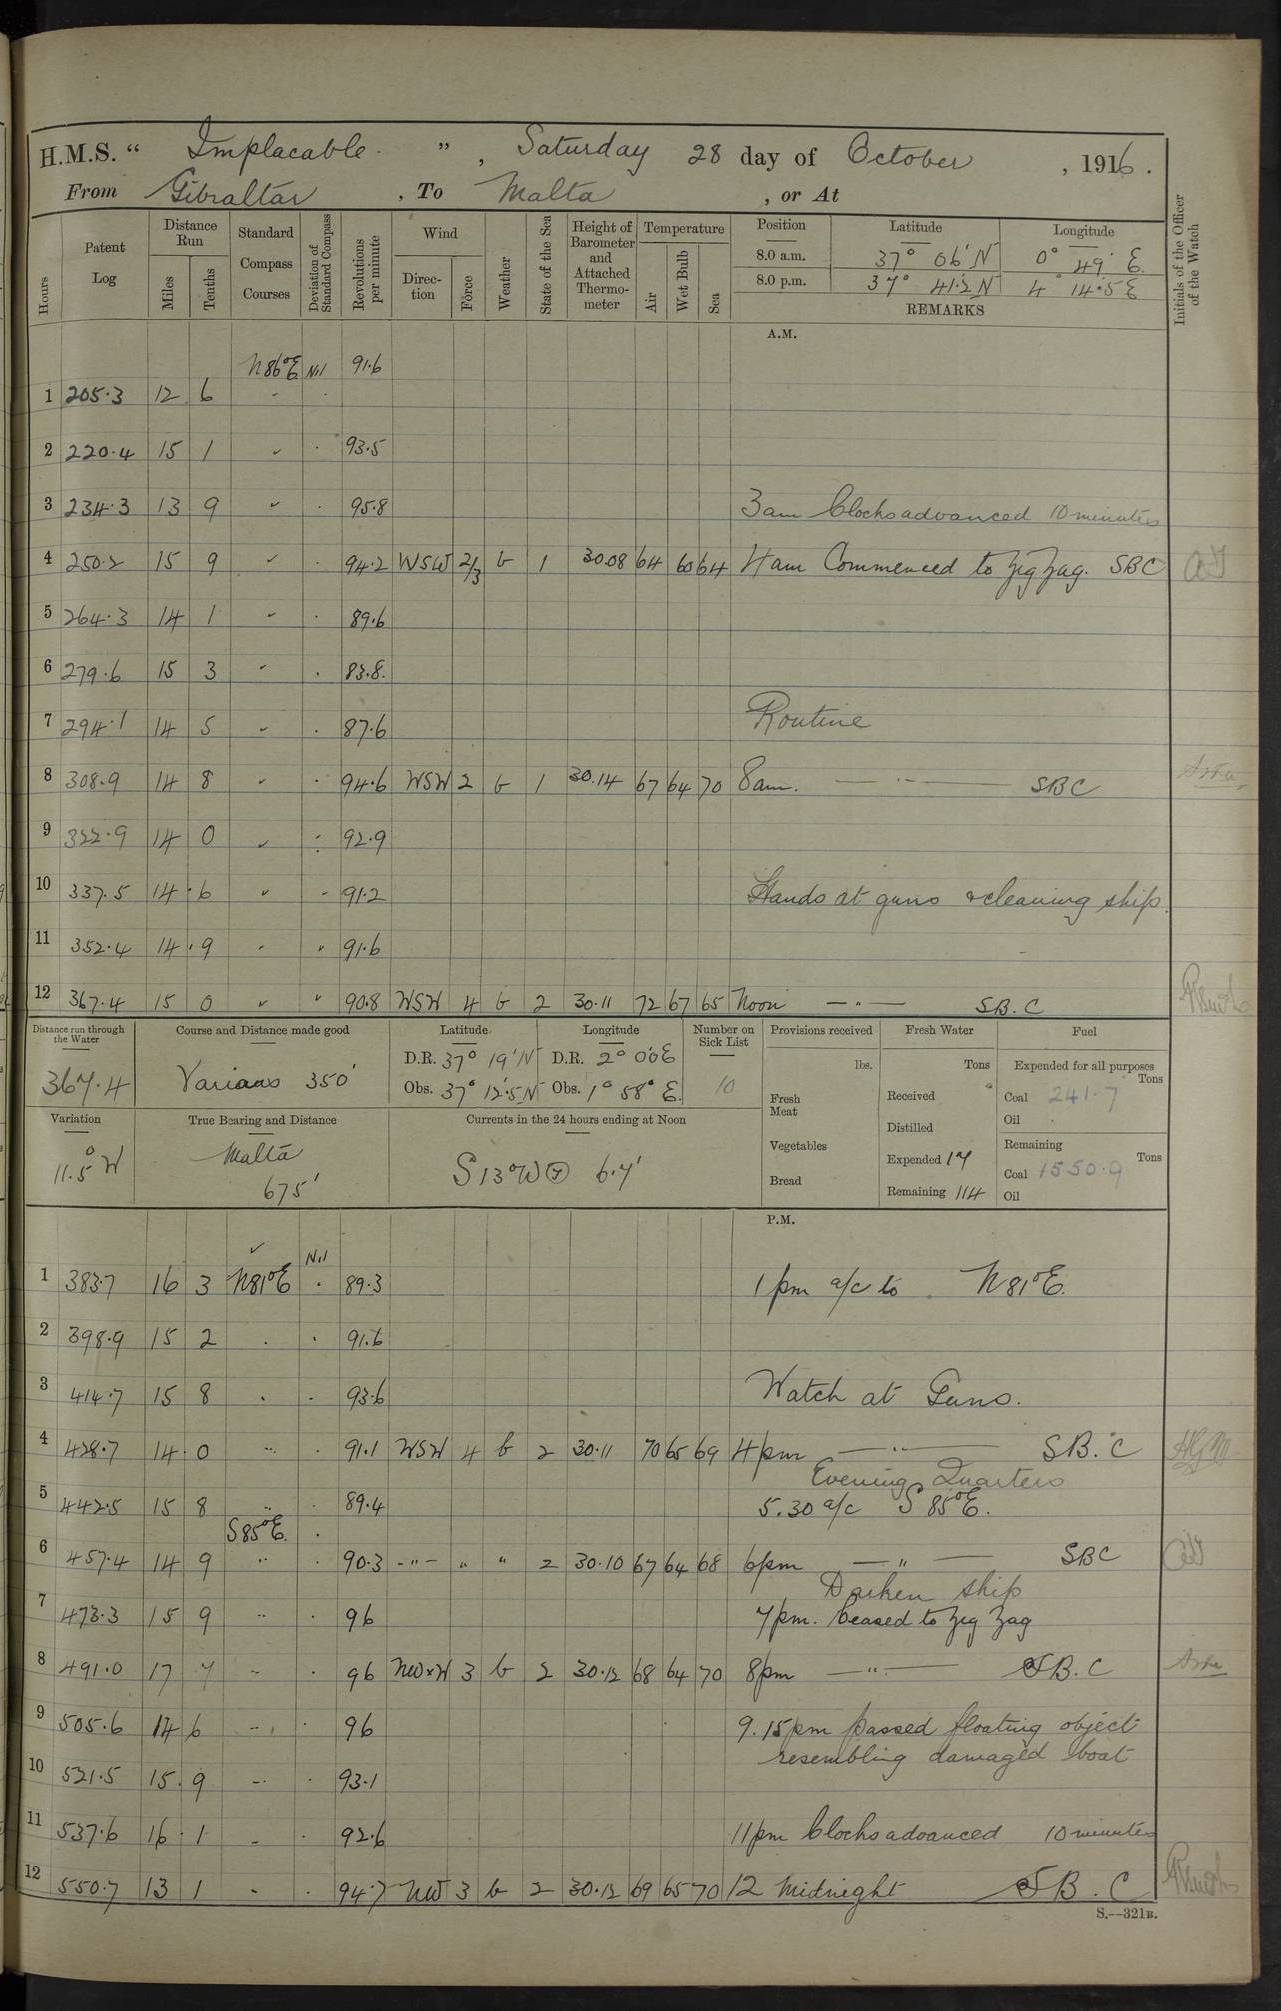 H.M.S. “ Implacable ” , Saturday 28 day of October , 1916 .
From Gibraltar , To Malta , or At
Hours Patent Log Distance Run Miles Tenths Standard Compass Courses Deviation of Standard Compass Revolutions per minute Wind Direction Force Weather State of the Sea Height of Barometer and Attached Thermometer Temperature Air Wet Bulb Sea Position Latitude Longitude Initials of the Officer of the Watch
8.0 a.m. 37° 06' N 0° 49' E.
8.0 p.m. 37° 41.2 N 4° 14.5 E
REMARKS
A.M.
N86°E Nil 91.6
1 205.3 12 6
2 220.4 15 1 93.5
3 234.3 13 9 95.8 3am Clocks advanced 10 minutes
4 250.2 15 9 94.2 WSW 2/3 b 1 30.08 64 60 64 4am Commenced to Zig Zag. SBC
5 264.3 14 1 89.6
6 279.6 15 3 83.8.
7 294.1 14 5 87.6 Routine
8 308.9 14 8 94.6 WSW 2 b 1 30.14 67 64 70 8am. — " — SBC
9 322.9 14 0 92.9
10 337.5 14 6 91.2 Hands at guns & cleaning ship.
11 352.4 14 9 91.6
12 367.4 15 0 90.8 WSW 4 b 2 30.11 72 67 65 Noon — " — SB.C
Distance run through the Water Course and Distance made good Latitude Longitude Number on Sick List Provisions received Fresh Water Fuel
367.4 Various 350' D.R. 37° 19' N D.R. 2° 0'0 E
Obs. 37° 12.5 N Obs. 1° 58' E. 10
lbs. Tons Expended for all purposes Tons
Fresh Meat Received Coal 241.7
Oil
Variation True Bearing and Distance Currents in the 24 hours ending at Noon
11.5° W Malta 675' S 13° W 6.7'
Vegetables Distilled Remaining Tons
Expended 17 Coal 1550.9
Bread Remaining 114 Oil
P.M.
Nil
1 383.7 16 3 N81°E 89.3 1pm a/c to N81°E.
2 398.9 15 2 91.6
3 414.7 15 8 93.6 Watch at Guns.
4 428.7 14 0 91.1 WSW 4 b 2 30.11 70 65 69 4pm — " — SB.C
Evening Quarters
5 442.5 15 8 89.4 5.30 a/c S 85°E.
S85°E.
6 457.4 14 9 90.3 - " - " " 2 30.10 67 64 68 6pm — " — SBC
Darken ship
7 473.3 15 9 96 7pm. Ceased to Zig Zag
8 491.0 17 7 96 NWxW 3 b 2 30.12 68 64 70 8pm — " — SB.C
9 505.6 14 6 96 9.15pm passed floating object
resembling damaged boat
10 521.5 15 9 93.1
11 537.6 16 1 92.6 11pm Clocks advanced 10 minutes
12 550.7 13 1 94.7 NW 3 b 2 30.12 69 65 70 12 Midnight SB.C
S.—321B.